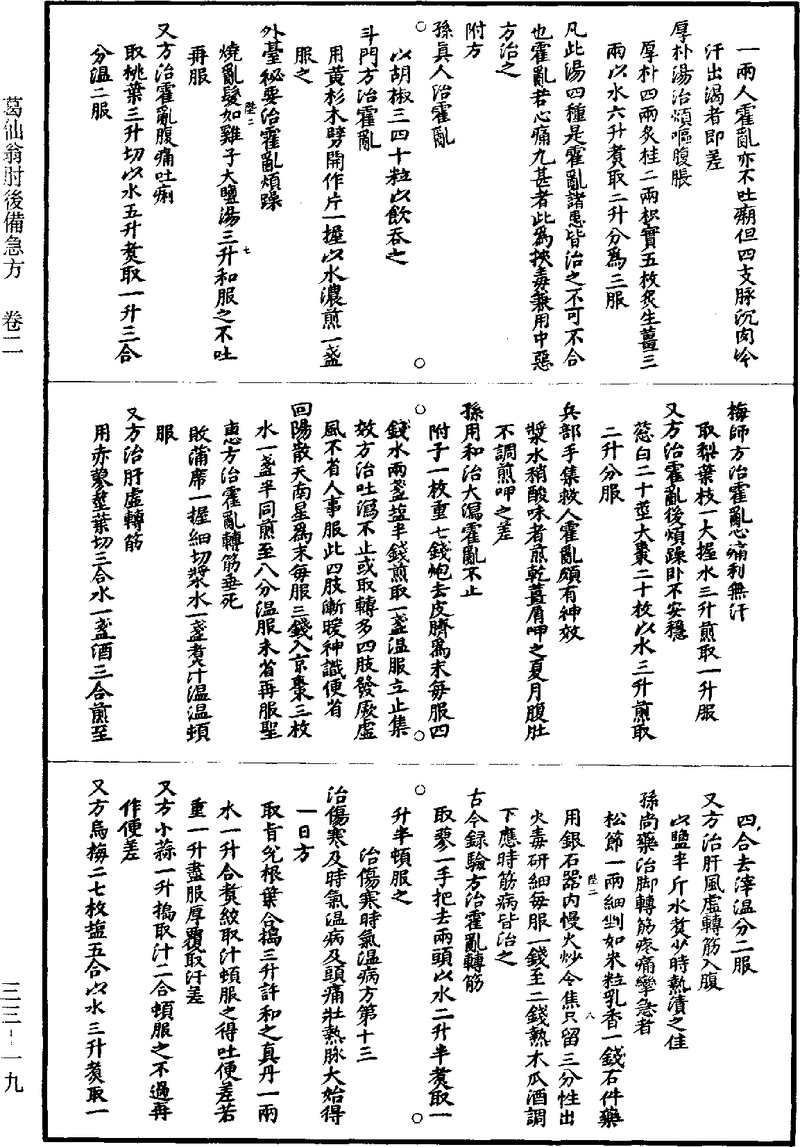 葛仙翁肘後備急方 卷二
三三-一九
一兩人霍亂亦不吐痢但四支脉沉肉冷
汗出渴者即差
厚朴湯治煩嘔腹脹
厚朴四兩炙桂二兩枳實五枚炙生薑三
兩以水六升煮取二升分爲三服
凡此湯四種是霍亂諸患皆治之不可不合
也霍亂若心痛九甚者此爲挾毒兼用中惡
方治之
附方
孫真人治霍亂
以胡椒三四十粒以飲吞之
斗門方治霍亂
用黃杉木劈開作片一握以水濃煎一盞
服之
外臺秘要治霍亂煩躁
陸二
燒亂髮如雞子大鹽湯三升和服之不吐
七
再服
又方治霍亂腹痛吐痢
取桃葉三升切以水五升煮取一升三合
分温二服
梅師方治霍亂心痛利無汗
取梨葉枝一大握水三升煎取一升服
又方治霍亂後煩躁卧不安穩
葱白二十莖大棗二十枚以水三升煎取
二升分服
兵部手集救人霍亂頗有神效
漿水稍酸味者煎乾薑屑呷之夏月腹肚
不調煎呷之差
孫用和治大瀉霍亂不止
附子一枚重七錢炮去皮臍爲末每服四
錢水兩盞鹽半錢煎取一盞温服立止集
效方治吐瀉不止或取轉多四肢發厥虚
風不省人事服此四肢漸暖神識便省
回陽散天南星爲末每服三錢入京棗三枚
水一盞半同煎至八分温服未省再服聖
惠方治霍亂轉筋垂死
敗蒲席一握細切漿水一盞煮汁温温頓
服
又方治肝虚轉筋
用赤蓼莖葉切三合水一盞酒三合煎至
四合去滓温分二服
又方治肝風虚轉筋入腹
以鹽半斤水煮少時熱漬之佳
孫尚藥治脚轉筋疼痛攣急者
松節一兩細剉如米粒乳香一錢右件藥
陸二
用銀石器内慢火炒令焦只留三分性出
八
火毒研細每服一錢至二錢熱木瓜酒調
下應時筋病皆治之
古今録驗方治霍亂轉筋
取蓼一手把去兩頭以水二升半煮取一
升半頓服之
治傷寒時氣温病方第十三
治傷寒及時氣温病及頭痛壯熱脉大始得
一日方
取旨兊根葉合搗三升許和之真丹一兩
水一升合煮絞取汁頓服之得吐便差若
重一升盡服厚覆取汗差
又方小蒜一升搗取汁三合頓服之不過再
作便差
又方烏梅二七枚鹽五合以水三升煮取一